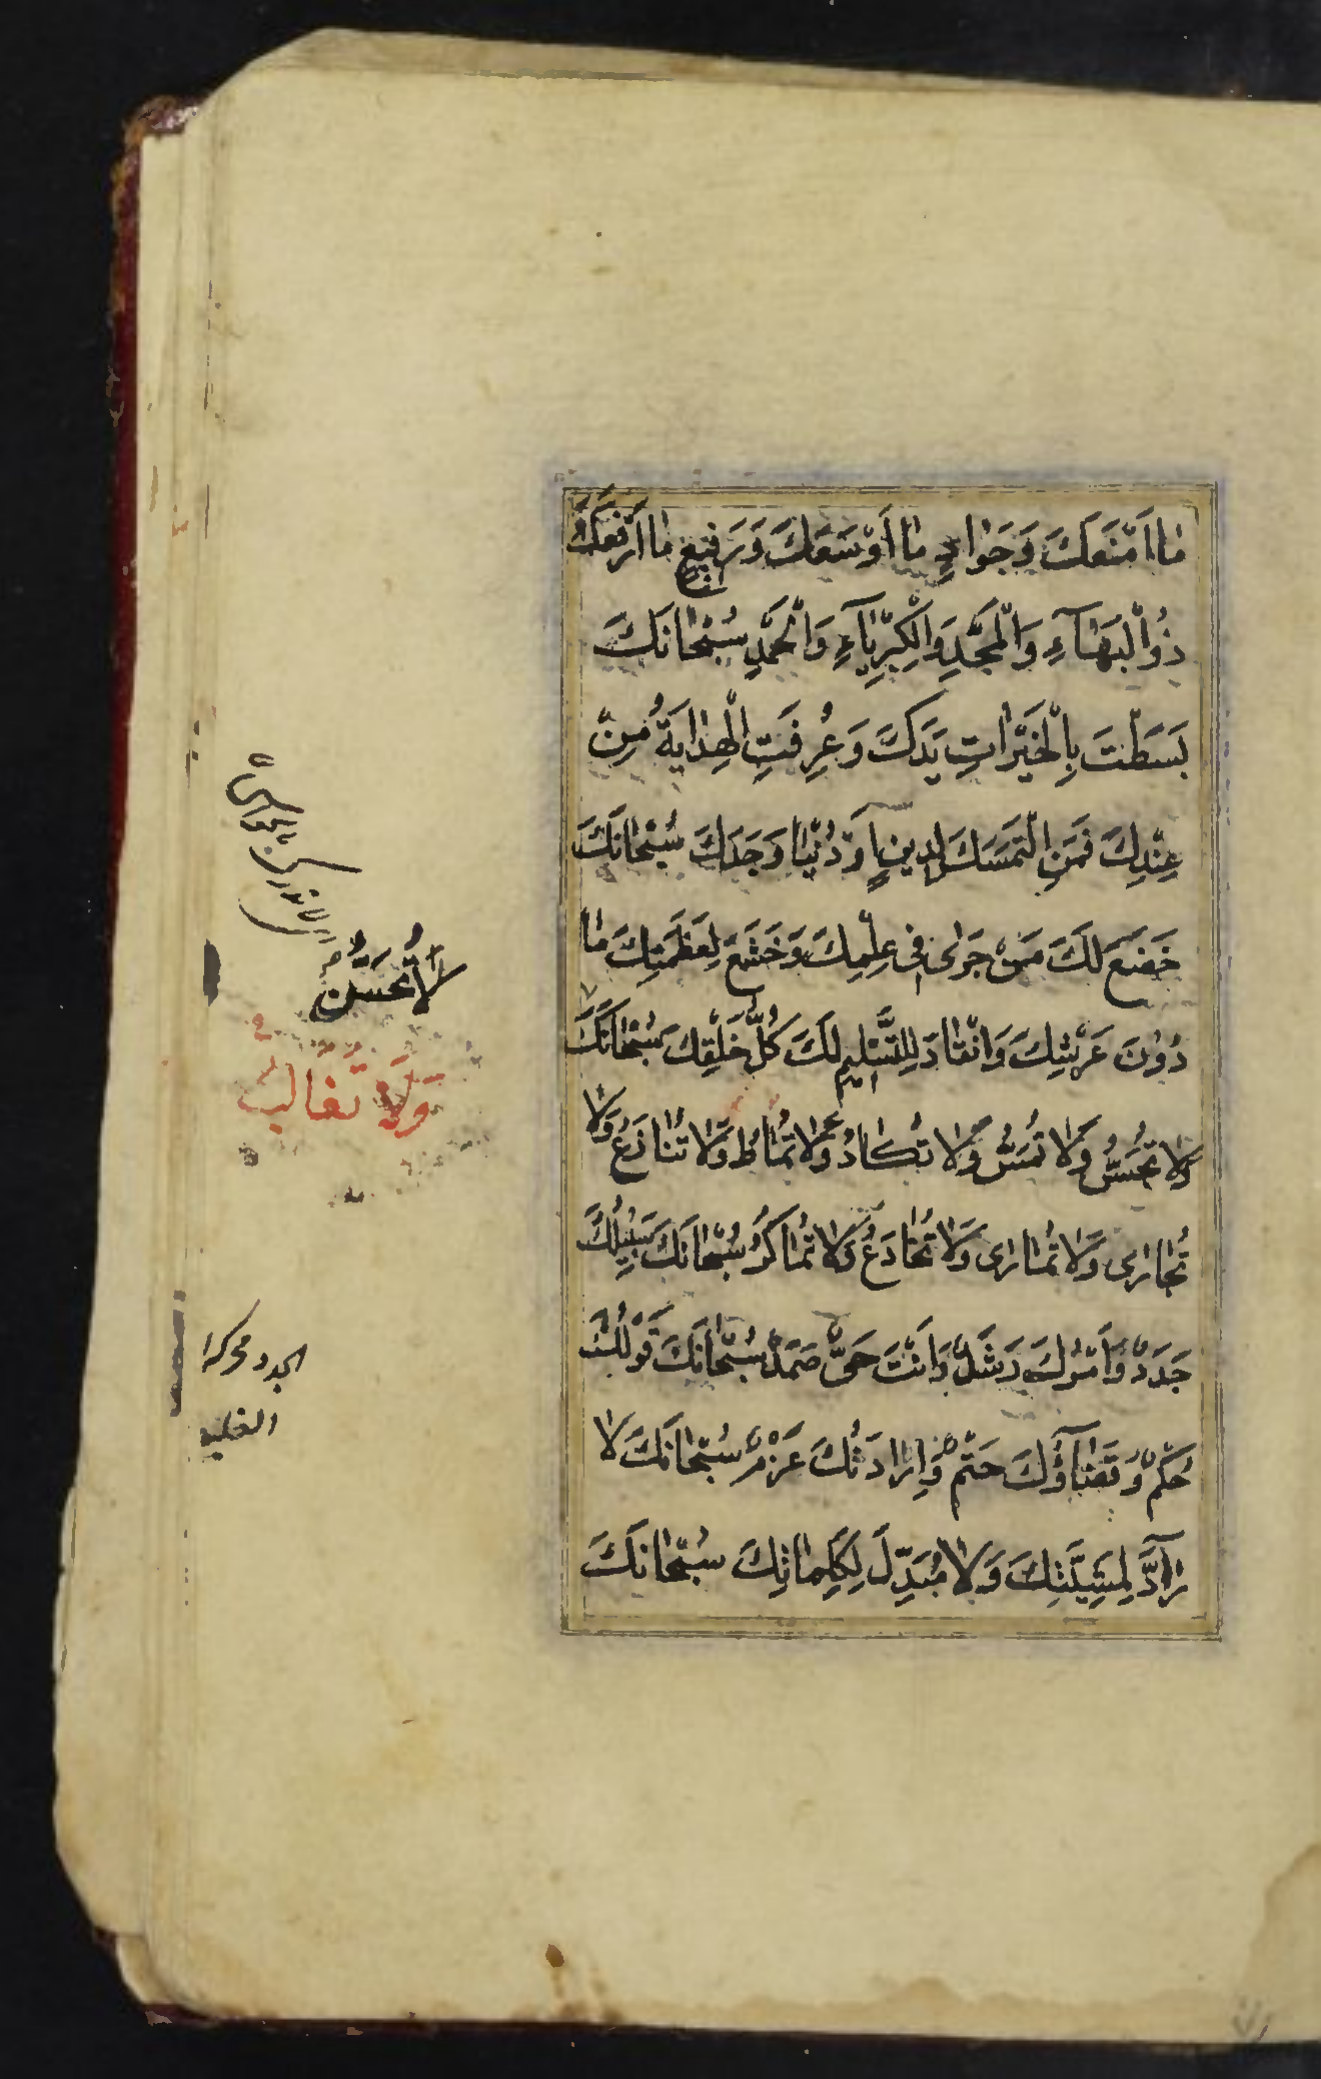 مٰا اَمْنَعَكَ وَجَوٰادٍ مٰا اَوْسَعَكَ وَرَفيعٍ مٰا اَرْفَعَكَ
ذُو الْبَهٰآءِ وَالْمَجْدِ وَالْكِبْرِيٰآءِ وَالْحَمْدِ سُبْحٰانَكَ
بَسَطْتَ بِالْخَيْرٰاتِ يَدَكَ وَعُرِفَتِ الْهِدٰايَةُ مِنْ
عِنْدِكَ فَمَنِ الْتَمَسَكَ لِدينٍ اَوْ دُنْيٰا وَجَدَكَ سُبْحٰانَكَ
خَضَعَ لَكَ مَنْ جَرىٰ فى عِلْمِكَ وَخَشَعَ لِعَظَمَتِكَ مٰا
دُوْنَ عَرْشِكَ وَانْقٰادَ لِلتَّسْليمِ لَكَ كُلُّ خَلْقِكَ سُبْحٰانَكَ
لا تُحَسُّ وَلا تُمَسُّ وَلا تُكٰادُ وَلا تُمٰاطُ وَلا تُنٰازَعُ وَلا
تُجٰارىٰ وَلا تُمٰارىٰ وَلا تُخٰادَعُ وَلا تُمٰاكَرُ سُبْحٰانَكَ سَبيلُكَ
جَدَدٌ وَاَمْرُكَ رَشَدٌ وَاَنْتَ حَىٌّ صَمَدٌ سُبْحٰانَكَ قَوْلُكَ
حُكْمٌ وَقَضٰآؤُكَ حَتْمٌ وَاِرٰادَتُكَ عَزْمٌ سُبْحٰانَكَ لا
رٰآدَّ لِمَشِيَّتِكَ وَلا مُبَدِّلَ لِكَلِمٰاتِكَ سُبْحٰانَكَ
وَلا تُغالَبُ
الجدد محركة